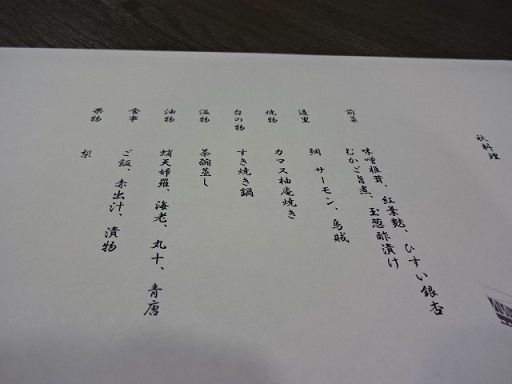 秋料理
前菜 味噌椎茸、紅葉麩、ひすい銀杏
むかご旨煮、玉葱酢漬け
造里 鯛 サーモン、烏賊
焼物 カマス柚庵焼き
台の物 すき焼き鍋
温物 茶碗蒸し
油物 蛸天婦羅、海老、丸十、青唐
食事 ご飯、赤出汁、漬物
果物 梨